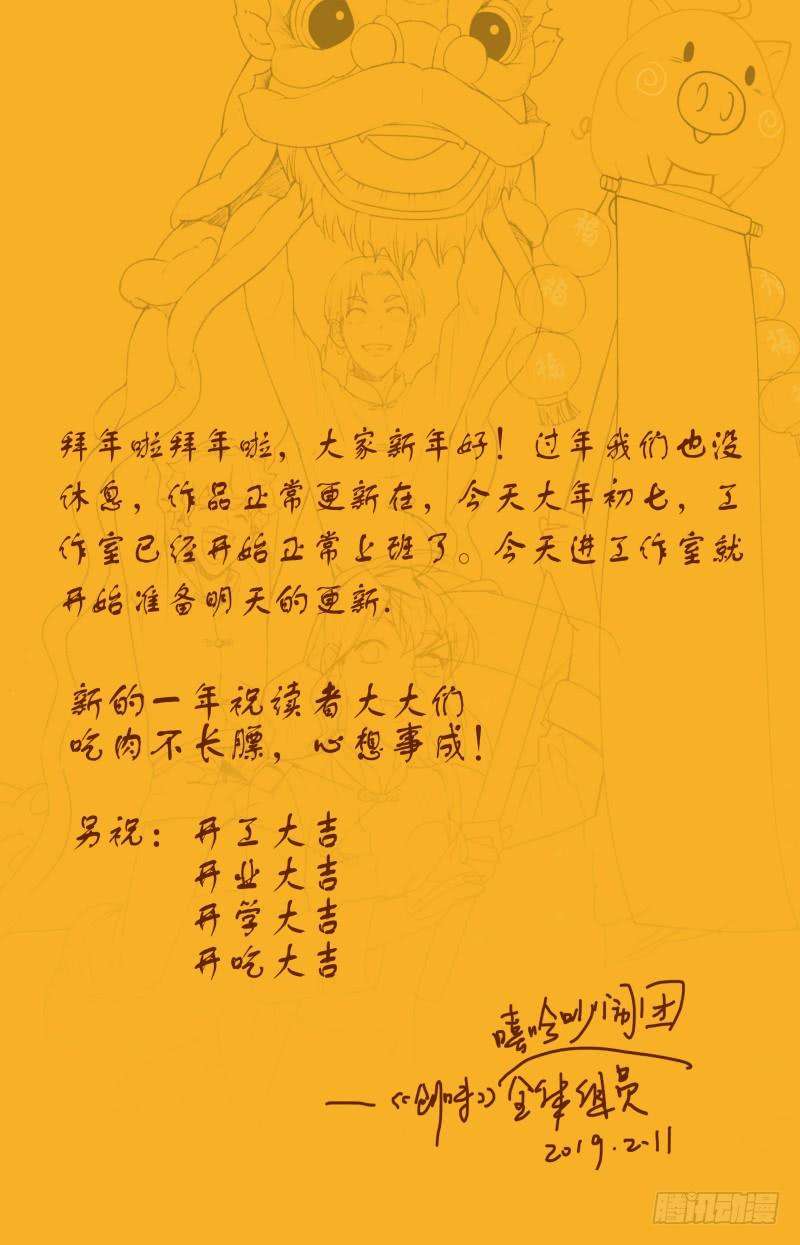 拜年啦拜年啦，大家新年好！过年我们也没
休息，作品正常更新在，今天大年初七，工
作室已经开始正常上班了。今天进工作室就
开始准备明天的更新.
新的一年祝读者大大们
吃肉不长膘，心想事成！
另祝：开工大吉
开业大吉
开学大吉
开吃大吉
嘻哈吵闹团
——《创味》全体组员
2019.2.11
福
福
福
腾讯动漫